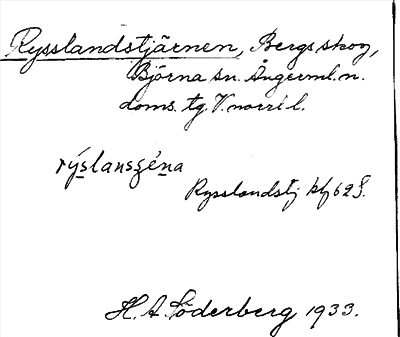 Rysslandstjärnen, Bergs skog,
Björna sn. Ångerml. n.
doms. tg. V. norrl l.
rýslanszéna
Rysslandstj kbf 62 S.
H. A. Söderberg 1933.